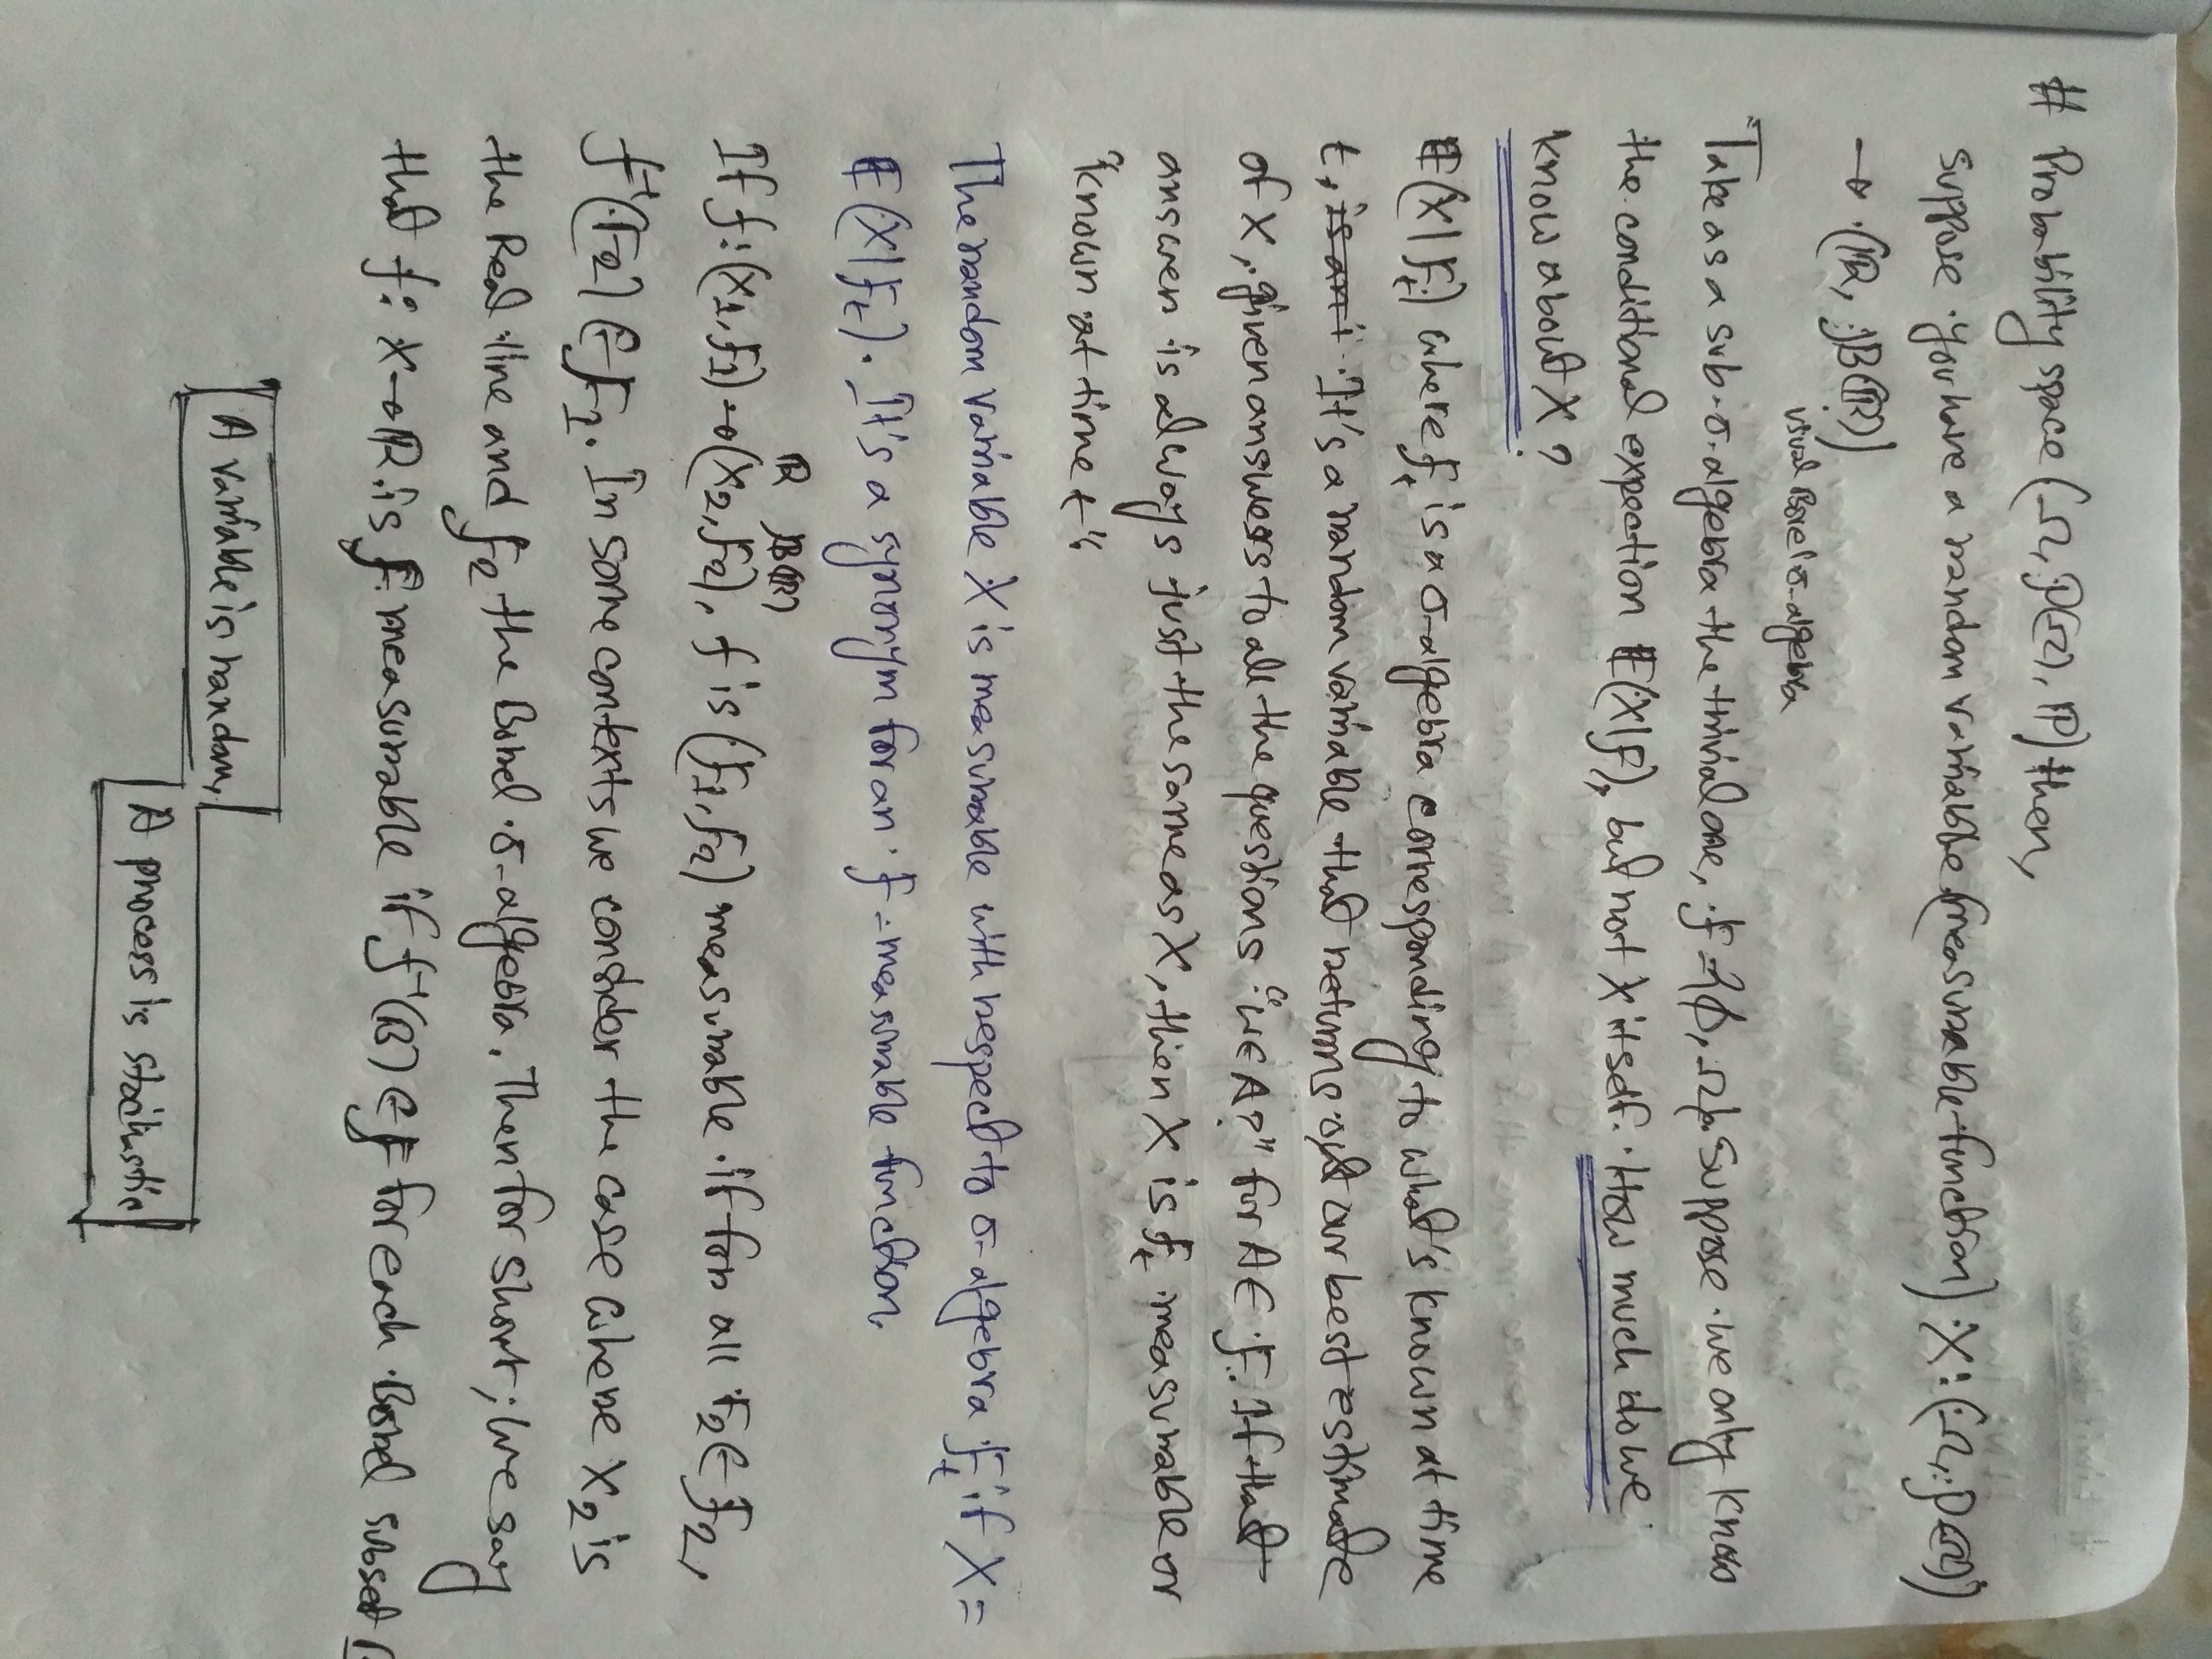 # Probability space (Ω, P(Ω), ℙ) then,
suppose you have a random variable (measurable function) X: (Ω, P(Ω))
→ (ℝ, B(ℝ))
usual Borel σ-algebra
Take as a sub-σ-algebra the trivial one, F = {∅, Ω}. Suppose we only know
the conditional expection E(X|F), but not X itself. How much do we
know about X?
E(X|F_t) where F_t is a σ-algebra corresponding to what's known at time
t, is an i. It's a random variable that returns out our best estimate
of X, given answers to all the questions "ω∈A?" for A∈F. If that
answer is always just the same as X, then X is F_t measurable or
"known at time t".
The random variable X is measurable with respect to σ-algebra F_t if X =
E(X|F_t). It's a synonym for an F-measurable function.
ℝ B(ℝ)
If f: (X1, F1) → (X2, F2), f is (F1, F2) measurable if for all F2 ∈ F2,
f⁻¹(F2) ∈ F1. In some contexts we consider the case where X2 is
the Real line and F2 the Borel σ-algebra. Then for short; we say
that f: X → ℝ is F measurable if f⁻¹(B) ∈ F for each Borel subset B
A variable is random,
A process is stochastic